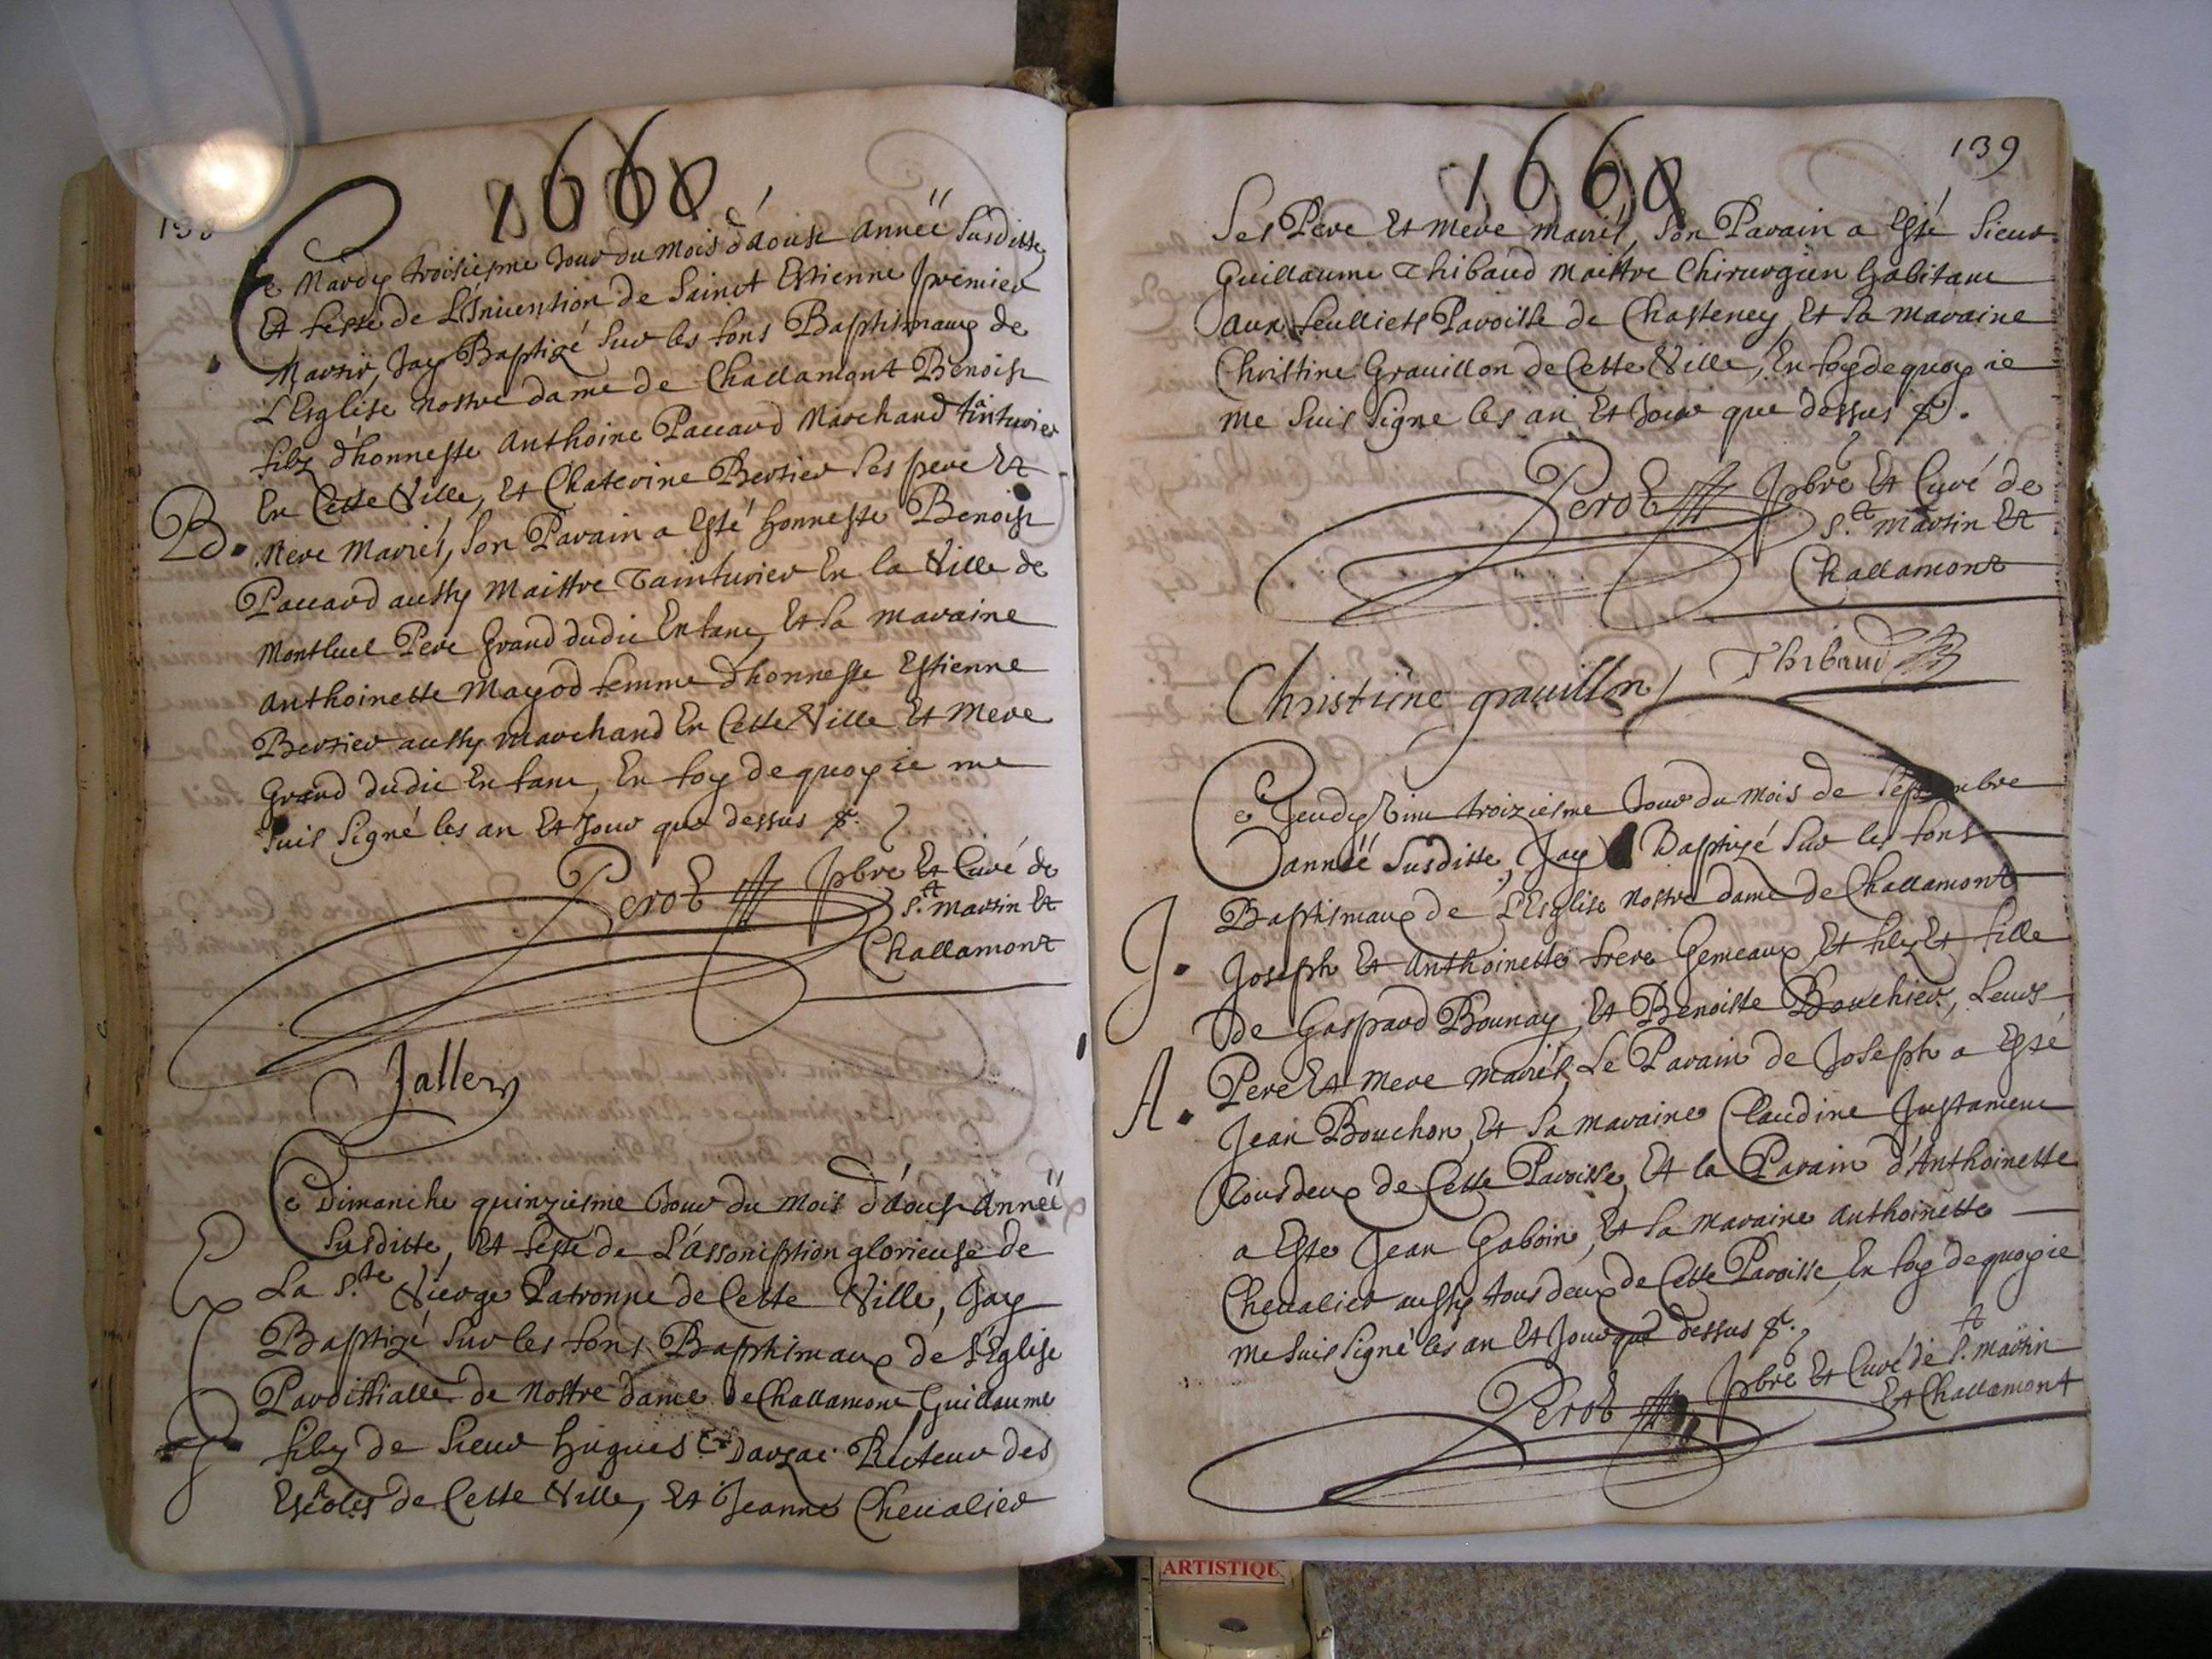 138
1660
Ce Mardy troisiesme Jour du mois d'Aoust Année Susditte
Et feste de L'Inuention de Sainct Estienne premier
Martir, Jay Baptizé Sur les fons Baptismaux de
L'Esglise nostre dame de Challamont Benoist
B.
filz d'honneste Anthoine Paccard Marchand tainturier
En Cette Ville, Et Chaterine Bertier Ses pere Et
Mere Mariés, Son Parain a Esté honneste Benoist
Paccard aussy Maistre Tainturier En la Ville de
Montluel Pere Grand dudic Enfant, Et Sa maraine
Anthoinette Mayod femme d'honneste Estienne
Bertier aussy marchand En Cette Ville Et Mere
Grand dudic Enfant, En foy de quoy ie me
Suis Signé les an Et Jour que dessus &.
Perot pbre Et Curé de
S.t Martin Et
Challamont
Jallery
Ce Dimanche quinziesme Jour du Mois d'Aoust Année
Susditte, Et feste de L'Assomption glorieuse de
La S.te Vierge Patronne de Cette Ville, Jay
Baptizé Sur les fons Baptismaux de L'Eglise
Paroissialle de Nostre dame de Challamont Guillaume
filz de Sieur Hugues Darzac Recteur des
Escoles de Cette Ville, Et Jeanne Cheualier
139
1660
Ses Pere Et mere mariés, Son Parain a Esté Sieur
Guillaume Thibaud Maistre Chirurgien habitant
aux feulliets Paroisse de Chasteney, Et Sa maraine
Christine Grauillon de Cette Ville, En foy de quoy ie
me Suis Signe les an Et Jour que dessus &.
Perot pbre Et Curé de
S.t Martin Et
Challamont
Christine grauillon Thibaud
Ce Jeudy Vint troiziesme Jour du Mois de Septembre
année Susditte, Jay Baptizé Sur les fons
Baptismaux de L'Esglise Nostre dame de Challamont
J.
Joseph Et Anthoinette frere Gemeaux Et filz Et fille
de Gaspard Bounay, Et Benoiste Bouchier, Leurs
A.
Pere Et Mere Mariés, Le Parain de Joseph a Esté
Jean Bouchon, Et Sa maraine Claudine Justament
Tous deux de Cette Paroisse, Et le Parain d'Anthoinette
a Este Jean Gaboin, Et Sa maraine Anthoinette
Cheualier aussy tous deux de Cette Paroisse, En foy de quoy ie
me Suis Signé les an Et Jour que dessus &.
Perot pbre Et Curé de S.t Martin
Et Challamont
ARTISTIQU